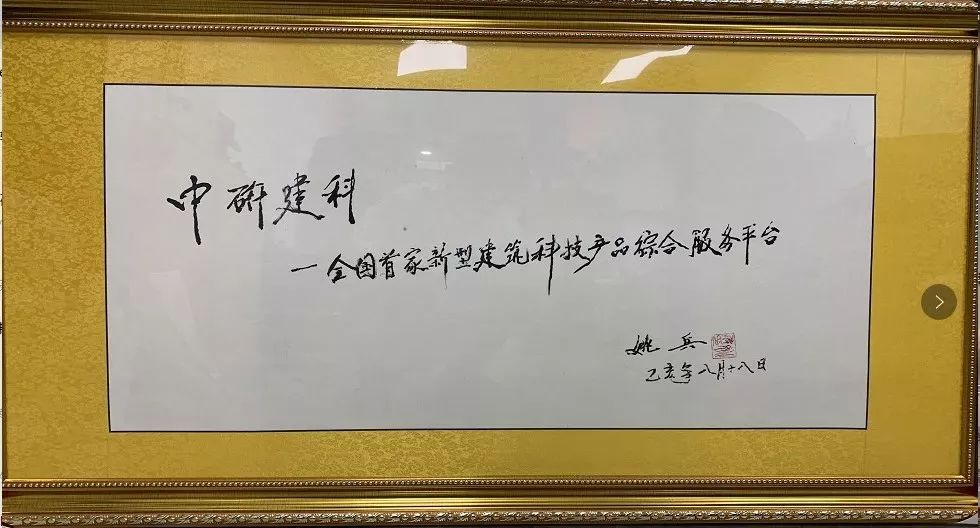 中研建科
—全国首家新型建筑科技产品綜合服务平台
姚兵
乙亥年八月十八日